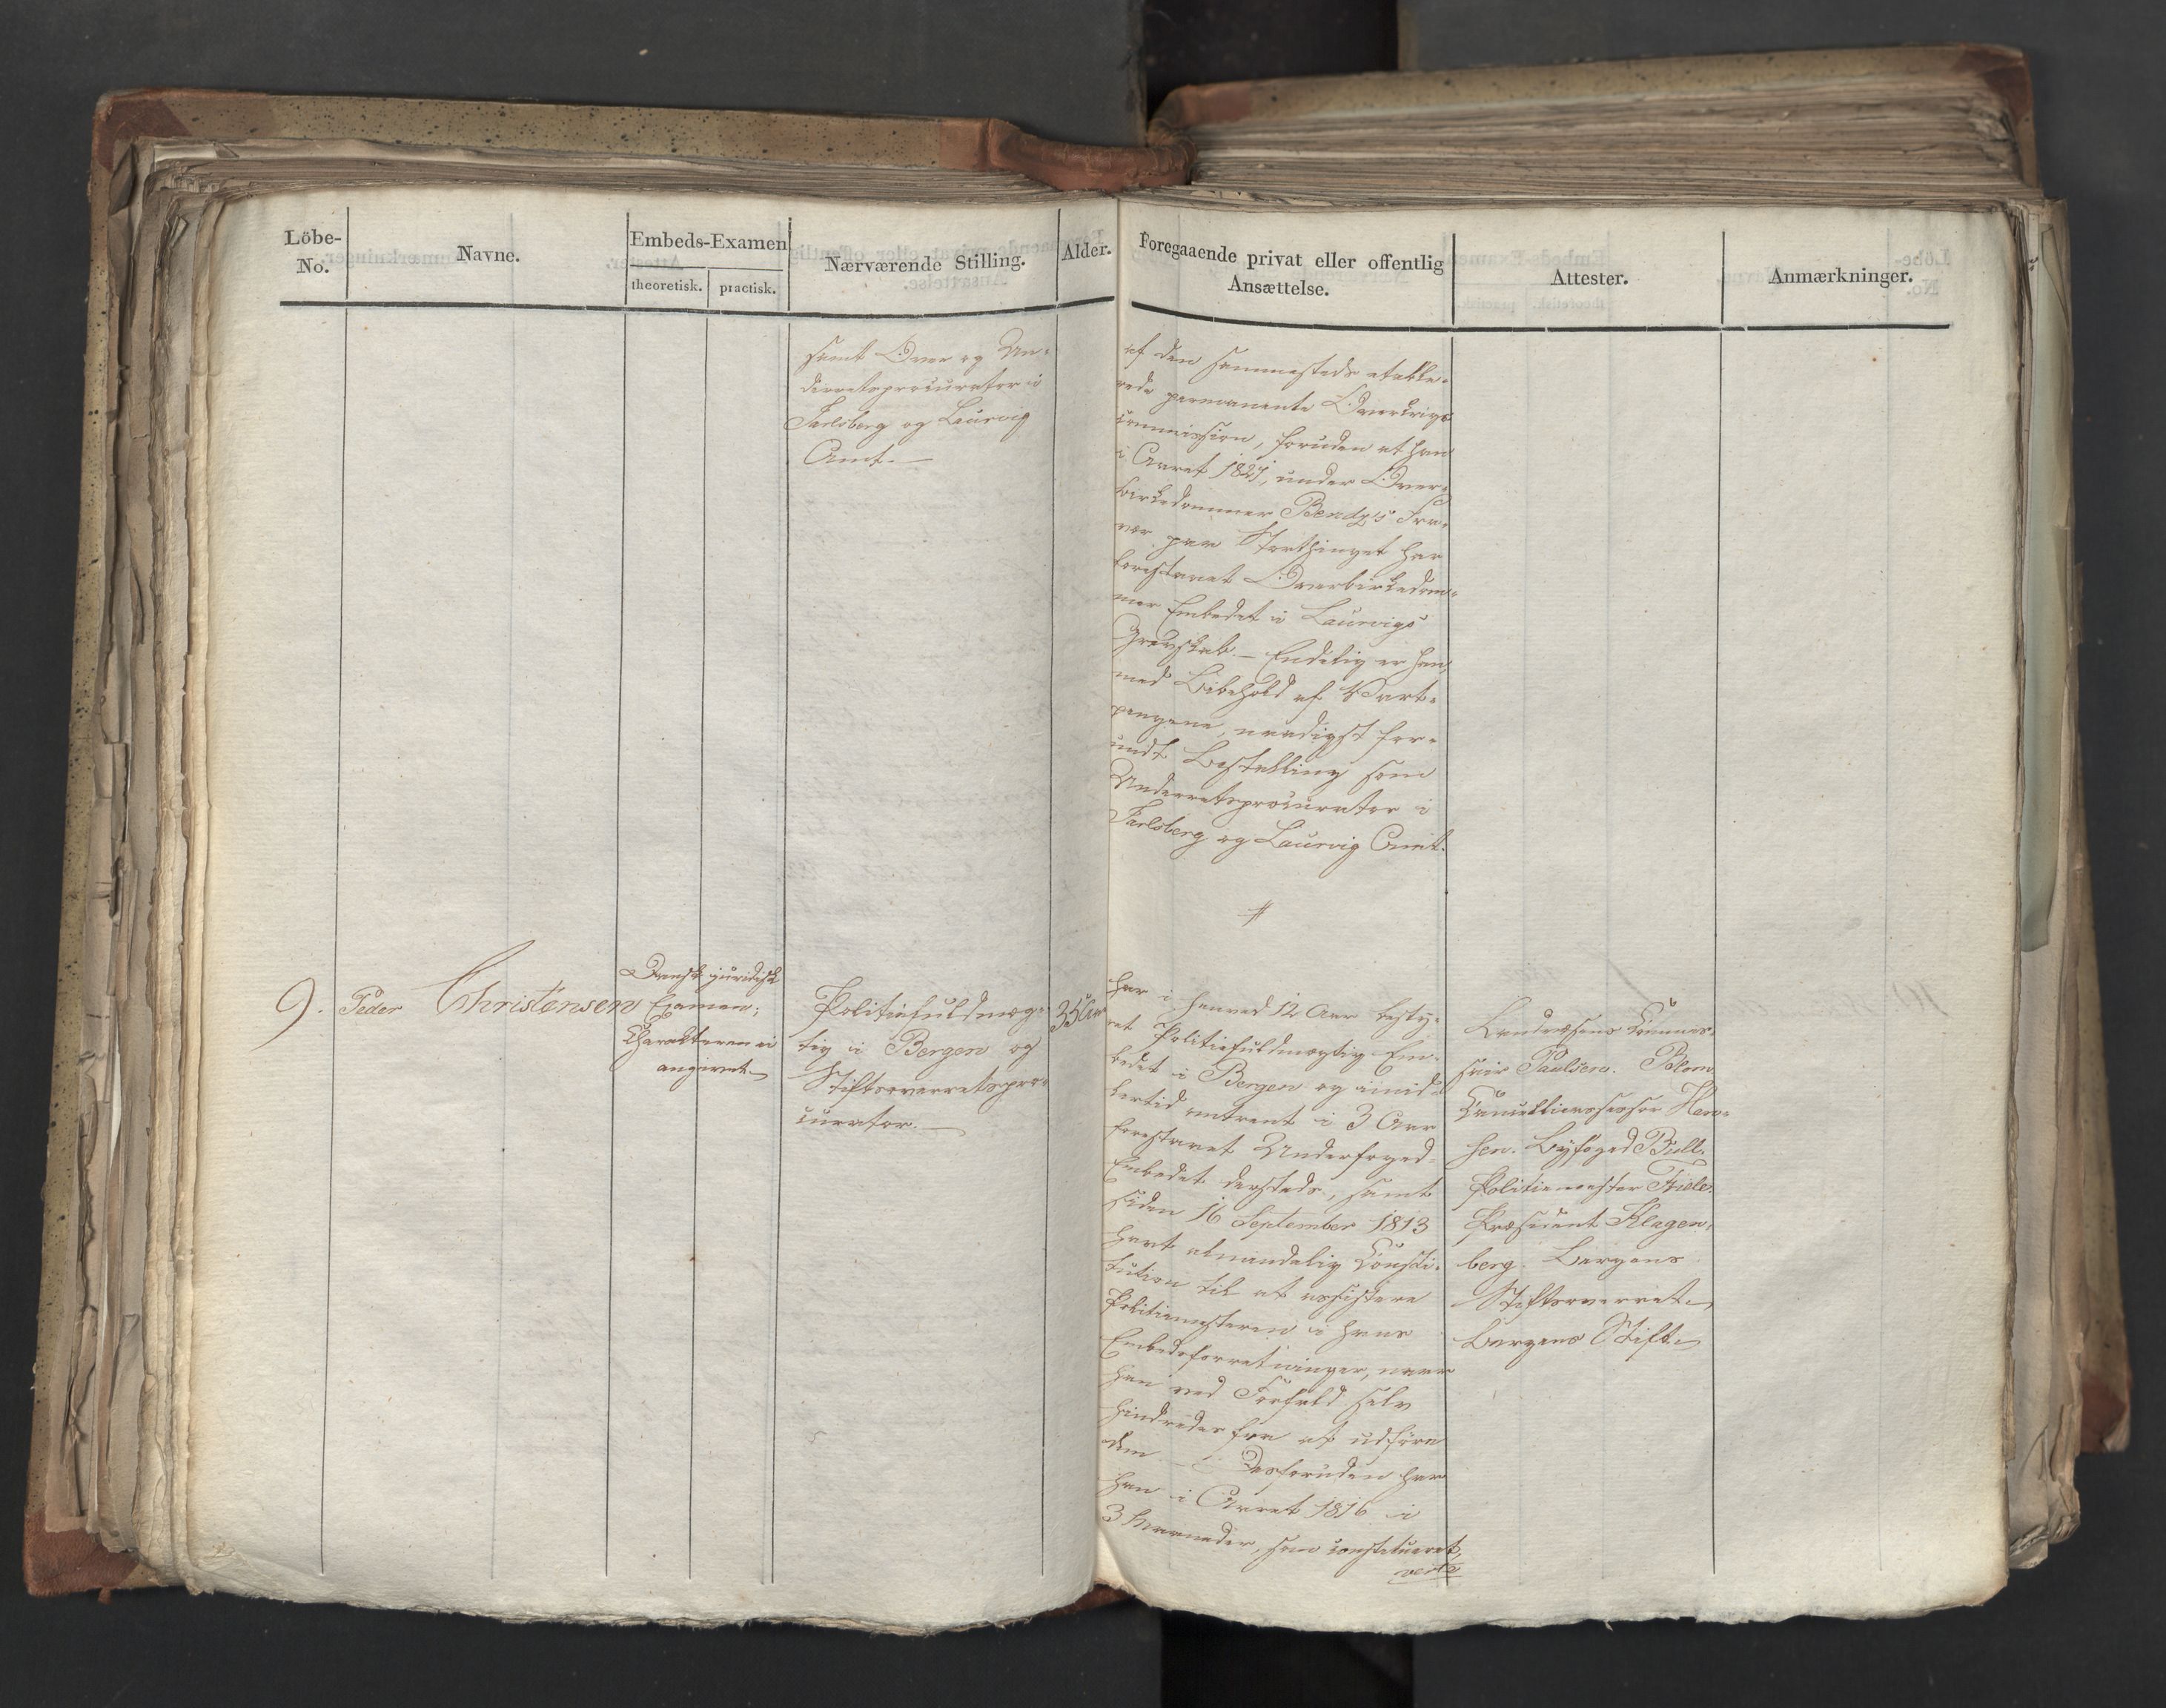 Löbe-
No.
Navne.
Embeds-Examen
theoretisk.
practisk.
Nærværende Stilling.
Alder.
Foregaaende privat eller offentlig
Ansættelse.
Attester.
Anmærkninger.
samt Over og Un-
derretsprocurator i
Jarlsberg og Laurvig
Amt.
af den sammesteds etable-
rede permanente Overkrigs
commission, foruden at han
i Aaret 1827, under Over-
birkedommer Bendz's Fra-
vær paa Storthinget har
forestaaet Overbirkedom-
mer Embedet i Laurvigs
Grevskab. - Endelig er han,
med Bibehold af Vart-
pengene, naadigst for-
undt Bestalling som
Underretsprocurator i
Jarlsberg og Laurvig Amt.
9.
Peder Christensen
Dansk juridisk
Examen;
Charakteren ei
angivet
Politiefuldmæg-
tig i Bergen og
Stiftsoverretspro-
curator.
35 Aar
har i henved 12 Aar besty-
ret Politiefuldmægtig Em-
bedet i Bergen og imid-
lertid omtrent i 3 Aar
forestaaet Underfoged-
Embedet dersteds, samt
siden 16 September 1813
havt almindelig Consti-
tution til at assistere
Politiemesteren i hans
Embedsforretninger, naar
han ved Forfald selv
hindredes fra at udføre
dem. - Desforuden har
han i Aaret 1816 i
3 Maaneder, som constitueret,
verte
Landvæsens Commis-
sair Paulsen.
Cancellieassessor Han-
sen. Byfoged Bull.
Politiemester
Præsident Klagen-
berg. Bergens
Stiftsoverret
Bergens Stift